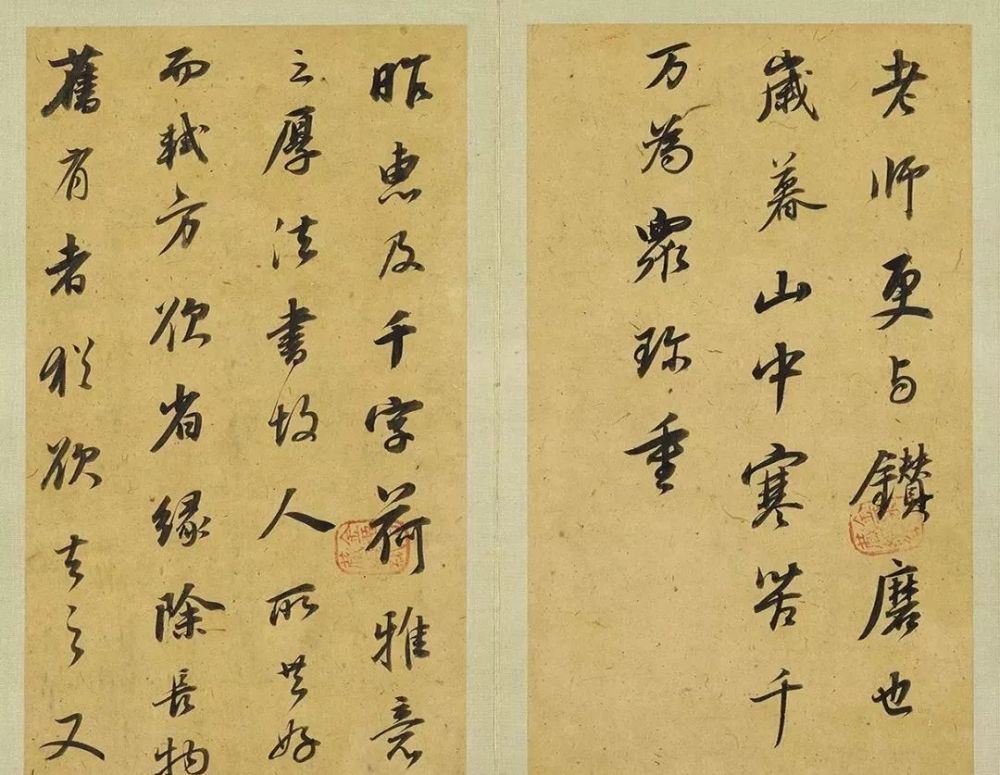 老師更与鑽磨也
歲暮山中寒苦千
万為眾珎重
昨惠及千字荷雅意
之厚法書故人所共好
而軾方欲省緣除長物
舊有者猶欲去之又